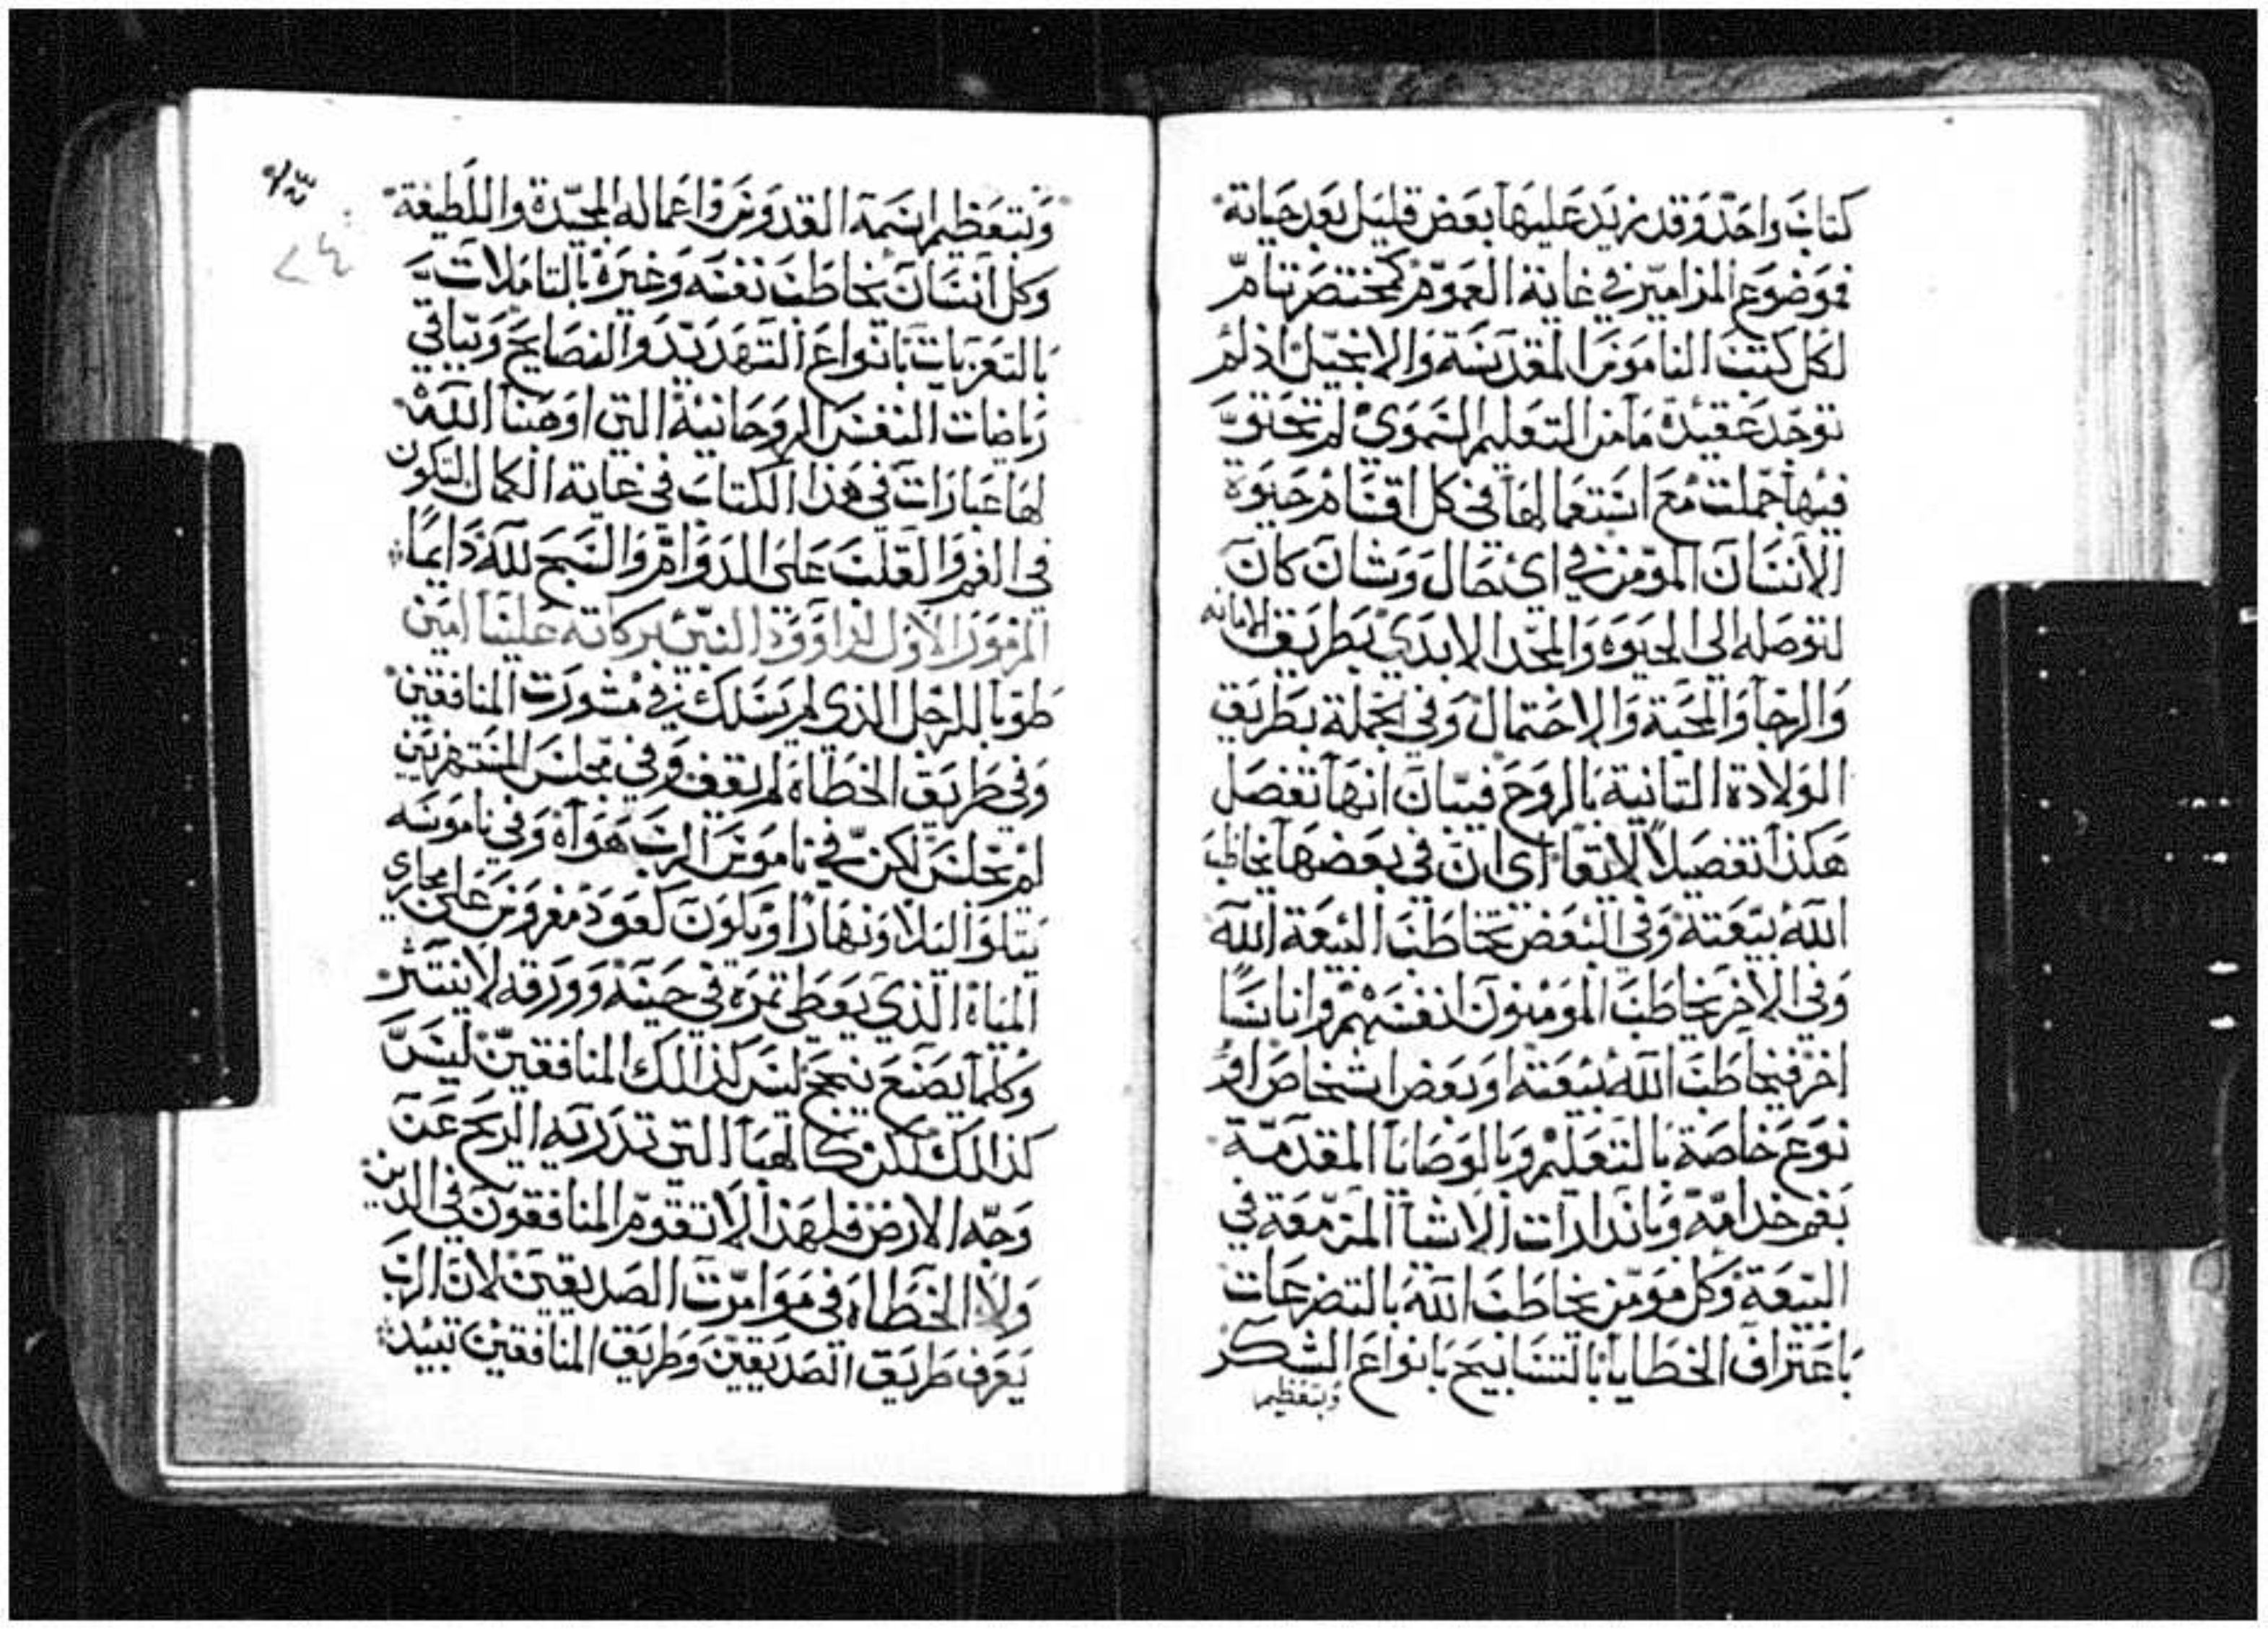 كتاب واحد وقد زيد عليها بعض قليل بعد حياته
فموضوع المزامير في غاية العموم كمختصر تام
لكل كتب الناموس المقدسة والانجيل اذ لم
توجد عقيدة ما من التعليم السموي لم تحتو
فيها جملت مع استعمالها في كل اقسام حيوة
الانسان المومن في اي حال وشان كان
لتوصله الى الحيوة والمجد الابدي بطريق الامانه
والرجا والمحبة والاحتمال وفي الجملة بطريق
الولادة الثانية بالروح فبيان انها تفصل
هكذا تفصيلاً لايقا اي ان في بعضها يخاطب
الله بيعته وفي البعض تخاطب البيعة الله
وفي الاخر يخاطب المومنون انفسهم واناسًا
اخر فيخاطب الله بيعته او بعض اشخاص او
نوع خاصة بالتعليم وبالوصايا المقدمة
بفم خدامه وبانذارات الاشيا المزمعة في
البيعة وكل مومن يخاطب الله بالتضرعات
باعتراف الخطايا بالتسابيح بانواع الشكر
وبتعظيم
وبتعظيم اسمه القدوس واعماله المجيدة واللطيفة
وكل انسان يخاطب نفسه وغيره بالتاملات
بالتعزيات بانواع التهديد والنصايح وتباقي
رياضات النفس الروحانية التي اوهبنا الله
لها عبارات في هذا الكتاب في غاية الكمال لتكون
في الفم والقلب على الدوام والسبح لله دايمًا
المزمور الاول لداوود النبي بركاته علينا امين
طوبا للرجل الذي لم يسلك في مشورت المنافقين
وفي طريق الخطاة لم يقف وفي مجلس المستهزيين
لم يجلس لكن في ناموس الرب هواه وفي ناموسه
يتلوا ليلا ونهارا ويكون كعود مغروس على مجاري
المياه الذي يعطي تمره في حينه وورقه لا ينتثر
وكلما يصنع ينجح ليس كذالك المنافقين ليس
كذالك لكن كالهبا التي تذريه الريح عن
وجه الارض فلهذا لا تقوم المنافقون في الدين
ولا الخطاه في موامرت الصديقين لان الرب
يعرف طريق الصديقين وطريق المنافقين تبيد